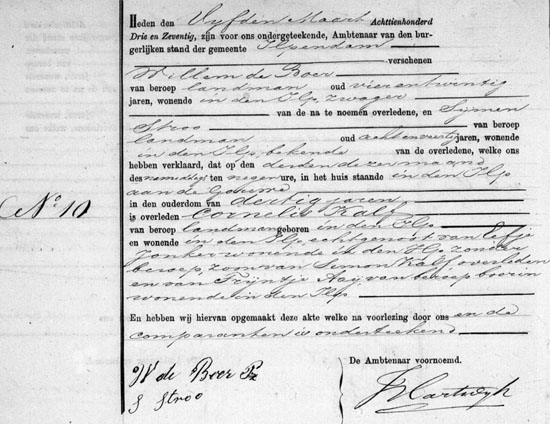 Heden den Vyfden Maart Achttienhonderd
Drie en Zeventig, zijn voor ons ondergeteekende, Ambtenaar van den bur-
gerlijken stand der gemeente Ilpendam
verschenen
Willem de Boer
van beroep landman oud vierentwintig
jaren, wonende in den Ilp, zwager
van de na te noemen overledene, en Symen
Stroo van beroep
landman oud achtenveertig jaren, wonende
in den Ilp, bekende van de overledene, welke ons
hebben verklaard, dat op den derden dezer maand
des namiddags ten negen ure, in het huis staande in den Ilp
aan de
in den ouderdom van dertig jaren
is overleden Cornelis Kalf
van beroep landman geboren in den Ilp
en wonende in den Ilp, echtgenoot van Eefje
Jonker wonende in den Ilp zonder
beroep, zoon van Simon Kalf overleden
en van Tryntje van beroep boerin
wonende in den Ilp
No 10
En hebben wij hiervan opgemaakt deze akte welke na voorlezing door ons en de
comparanten is onderteekend
De Ambtenaar voornoemd.
W de Boer Pz
S Stroo